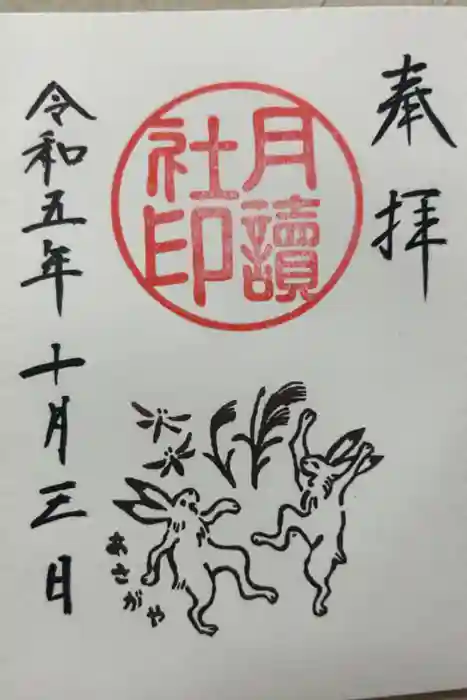 奉拝
月讀
社印
令和五年十月三日
あさがや